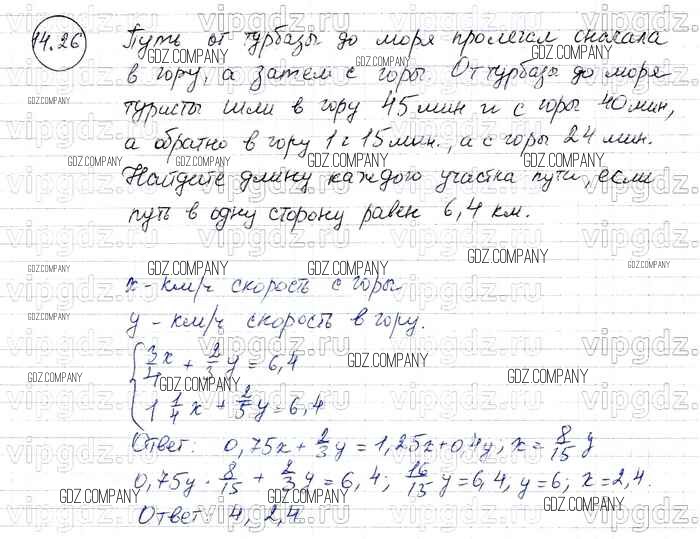 14.26 Путь от турбазы до моря пролегал сначала
в гору, а затем с горы. От турбазы до моря
туристы шли в гору 45 мин и с горы 40 мин,
а обратно в гору 1 ч 15 мин., а с горы 24 мин.
Найдите длину каждого участка пути, если
путь в одну сторону равен 6,4 км.
x - км/ч скорость с горы
y - км/ч скорость в гору.
3/4 x + 2/3 y = 6,4
1 1/4 x + 2/5 y = 6,4
Ответ: 0,75x + 2/3 y = 1,25x + 0,4y; x = 8/15 y
0,75y · 8/15 + 2/3 y = 6,4; 16/15 y = 6,4, y = 6; x = 2,4.
Ответ: 4, 2,4
vipgdz.ru
GDZ.COMPANY